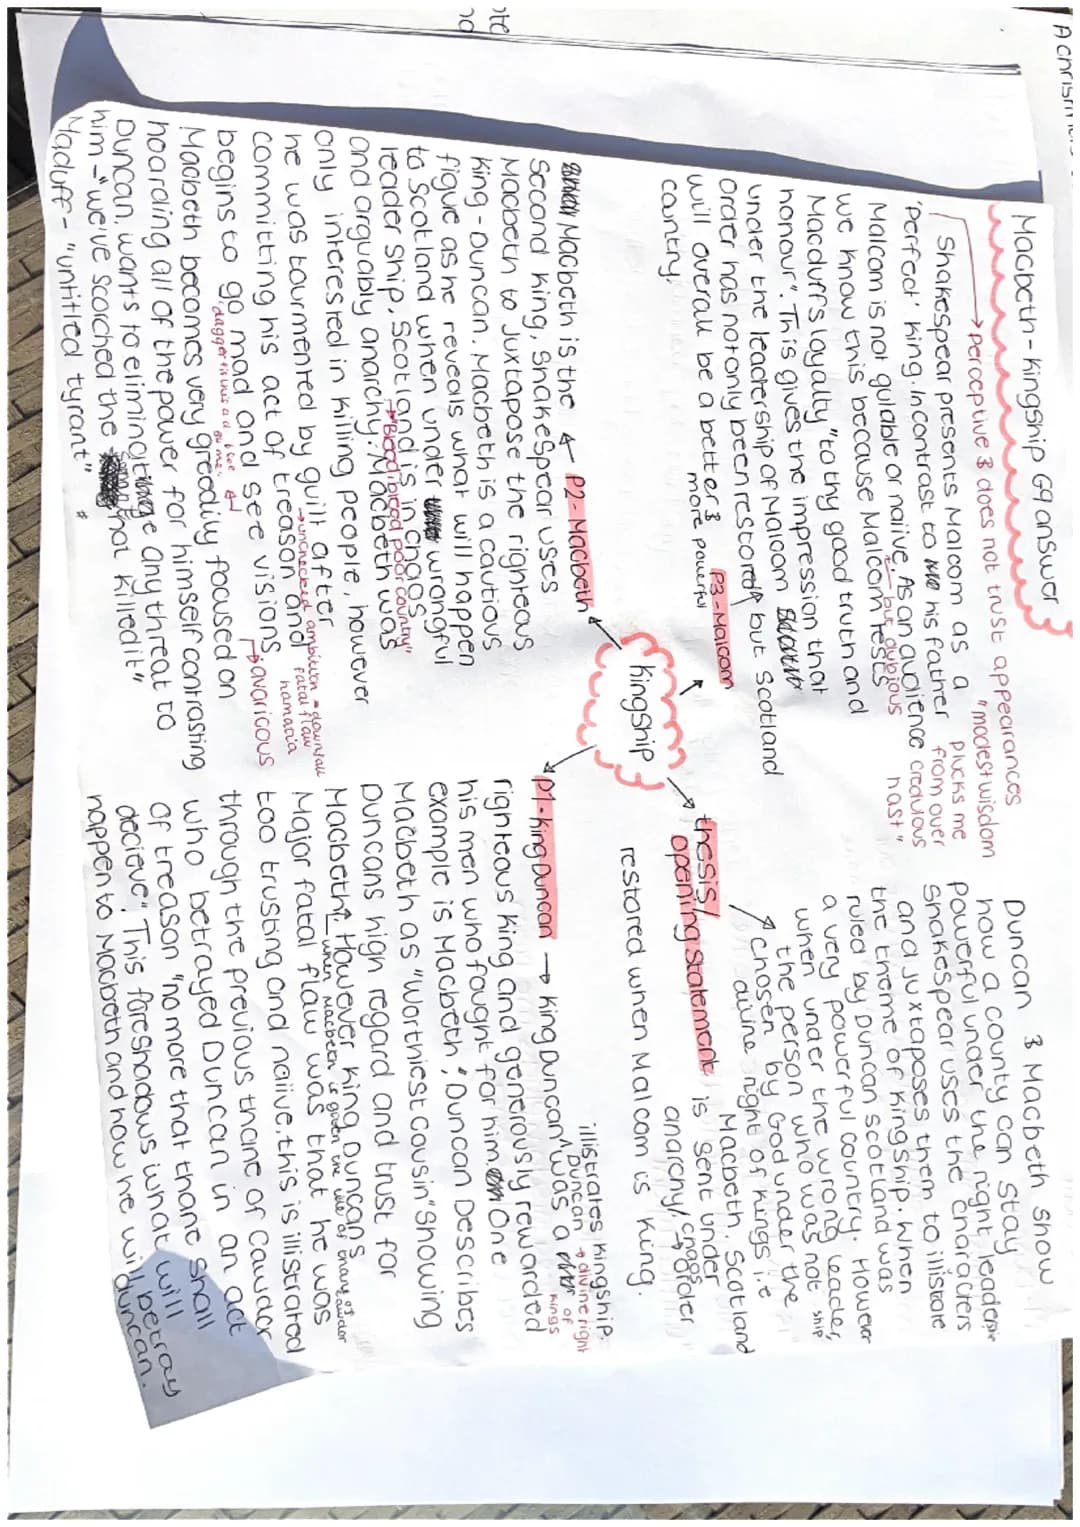 A chrism
Macbeth - Kingship G9 answer
→ perceptive & does not trust appearances
"modest wisdom
plucks me
from over
credulous
hast"
Shakespear presents Malcom as a
'perfect' king. In contrast to his father
Malcom is not gulable or naiive. As an audience
but dubious
we know this because Malcom tests
Macduff's loyalty "to thy good truth and
honour". This gives the impression that
under the leadership of Malcom
order has not only been restored but Scotland
will overall be a better &
more powerful
country.
P3 - Malcom
Kingship
thesis/
opening statement
Duncan & Macbeth show
how a county can stay
powerful under the right leader
ship
Shakespear uses the characters
and juxtaposes them to illistrate
the theme of kingship. When
ruled by Duncan Scotland was
a very powerful country. However
when under the wrong leader,
ship
the person who was not
chosen by God under the
divine right of kings i.e
Macbeth, Scotland
is sent under
anarchy/chaos
→ order
restored when Malcom is king.
P2 - Macbeth
Macbeth is the
second king, Shakespear uses
Macbeth to juxtapose the righteous
king - Duncan. Macbeth is a cautious
figue as he reveals what will happen
to Scotland when under wrongful
leader ship, Scotland is in chaos
→ "Bleed bleed poor country"
and arguably anarchy. Macbeth was
only interested in killing people, however
he was tourmented by guilt after
→ unchecked ambition = downfall
fatal flaw
hamaria
committing his act of treason and
begins to go mad and see visions
→ avaricious
dagger is this a
me
Macbeth becomes very greediy focused on
hoarding all of the power for himself contrasting
Duncan, wants to eliminate any threat to
him - "we've scorched the that killed it"
Macduff - "untitled tyrant"
P1 - King Duncan → King Duncan was a
illistrates kingship.
Duncan → divine right
of
kings
righteous king and generously rewarded
his men who fought for him. One
example is Macbeth, Duncan Describes
Macbeth as "worthiest cousin" showing
Duncans high regard and trust for
Macbeth. However, King Duncans
when Macbeth is given the title of thane of cawdor
Major fatal flaw was that he was
too trusting and naiive, this is illistrated
through the previous thane of Cawdor
who betrayed Duncan in an act
of treason "no more that thane shall
decieve". This foreshadows what will
happen to Macbeth and how he will betray
duncan.